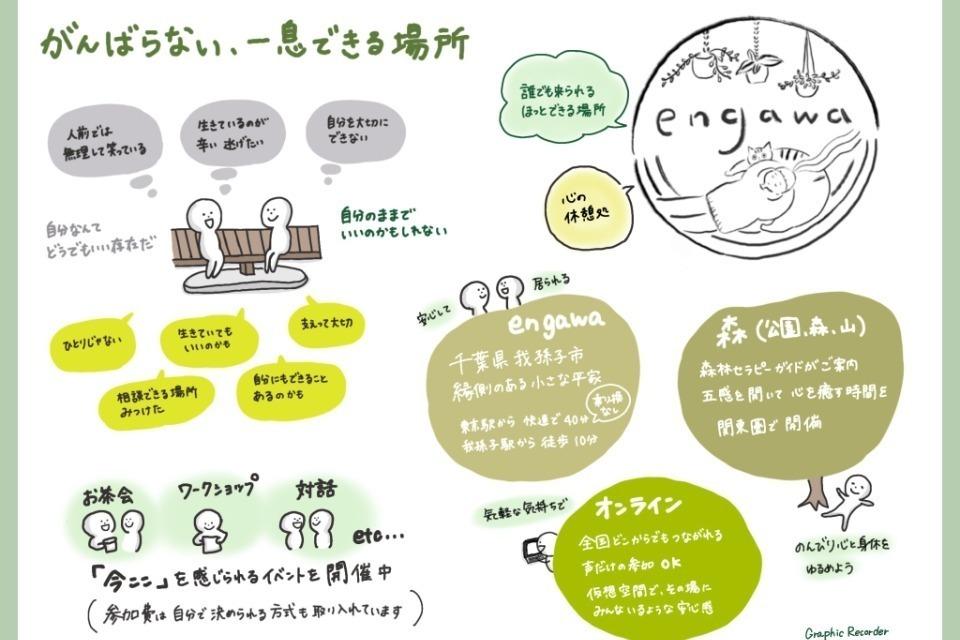 がんばらない、一息できる場所
人前では
無理して笑っている
生きているのが
辛い 逃げたい
自分を大切に
できない
自分なんて
どうでもいい存在だ
自分のままで
いいのかもしれない
ひとりじゃない
生きていても
いいのかも
支えって大切
相談できる場所
みつけた
自分にもできること
あるのかも
お茶会
ワークショップ
対話
etc...
「今ここ」を感じられるイベントを開催中
(参加費は自分で決められる方式も取り入れています)
誰でも来られる
ほっとできる場所
engawa
心の
休憩処
安心して
居られる
engawa
千葉県我孫子市
縁側のある小さな平家
東京駅から 快速で40分
乗り換
なし
我孫子駅から 徒歩10分
森(公園、森、山)
森林セラピーガイドがご案内
五感を開いて心を癒す時間を
関東圏で開催
のんびり心と身体を
ゆるめよう
気軽な気持ちで
オンライン
全国どこからでもつながれる
声だけの参加OK
仮想空間で、その場に
みんないるような安心感
Graphic Recorder